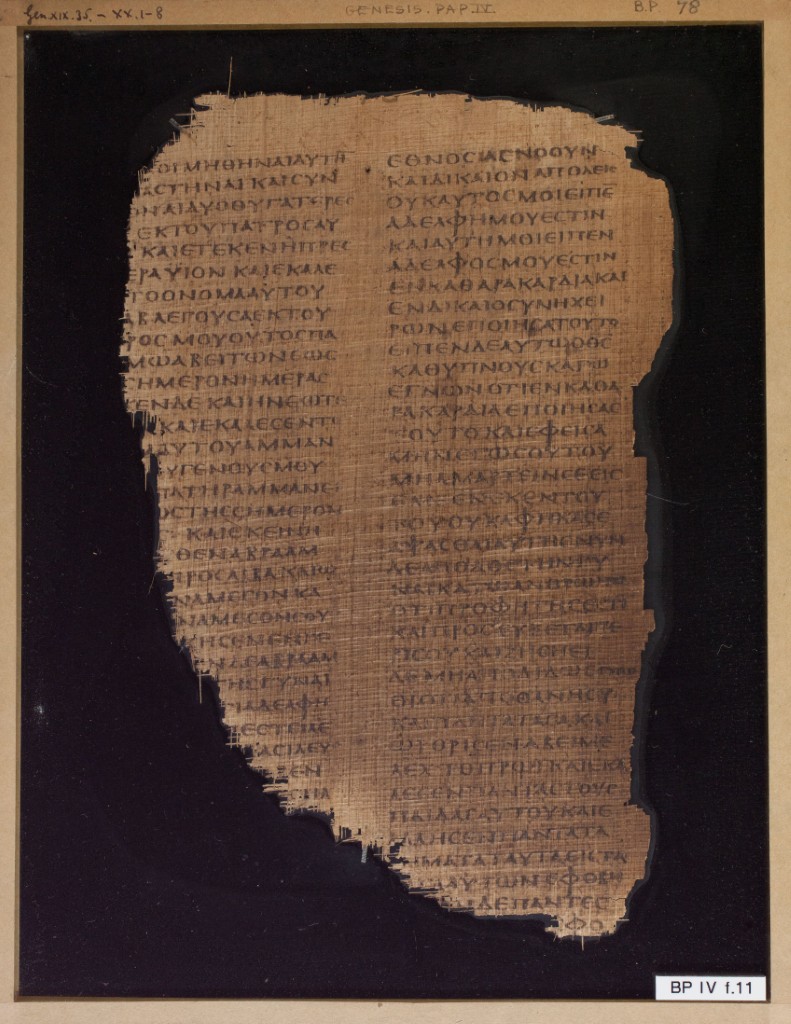 Gen XIX.35. – XX.1-8
GENESIS. PAP. IV.
B.P. 78
ΜΗΘΗΝΑΙΑΥΤΗ
ΑϹΤΗΝΑΙΚΑΙϹΥΝ
ΑΙΔΥΟΘΥΓΑΤΕΡΕϹ
ΕΚΤΟΥΠΑΤΡΟϹΑΥ
ΚΑΙΕΤΕΚΕΝΗΠΡΕϹ
ΕΡΑΥΙΟΝΚΑΙΕΚΑΛΕ
ΤΟΟΝΟΜΑΑΥΤΟΥ
ΑΒΛΕΓΟΥϹΑΕΚΤΟΥ
ΡΟϹΜΟΥΟΥΤΟϹΠΑ
ΜΩΑΒΕΙΤΩΝΕΩϹ
ϹΗΜΕΡΟΝΗΜΕΡΑϹ
ΕΝΔΕΚΑΙΗΝΕΩΤΕ
ΚΑΙΕΚΑΛΕϹΕΝΤ
ΑΥΤΟΥΑΜΜΑΝ
ΥΓΕΝΟΥϹΜΟΥ
ΠΑΤΗΡΑΜΜΑΝΕ
ΩϹΤΗϹϹΗΜΕΡΟΝ
ΚΑΙΕΚΕΙΝΗ
ΘΕΝΑΒΡΑΑΜ
ΠΡΟϹΛΙΒΑΚΑΙΩ
ΝΑΜΕϹΟΝΚΑ
ΝΑΜΕϹΟΝϹΟΥ
ΚΗϹΕΝΕΝΓΕ
ΕΝΔΕΑΒΡΑΑΜ
ΤΗϹΓΥΝΑΙ
ΑΔΕΛΦΗ
ΕϹΤΕΙΛΕ
ΑϹΙΛΕΥ
ΕΝ
ΕΘΝΟϹΑΓΝΟΟΥΝ
ΚΑΙΔΙΚΑΙΟΝΑΠΟΛΕΙϹ
ΟΥΚΑΥΤΟϹΜΟΙΕΙΠΕ
ΑΔΕΛΦΗΜΟΥΕϹΤΙΝ
ΚΑΙΑΥΤΗΜΟΙΕΙΠΕΝ
ΑΔΕΛΦΟϹΜΟΥΕϹΤΙΝ
ΕΝΚΑΘΑΡΑΚΑΡΔΙΑΚΑΙ
ΕΝΔΙΚΑΙΟϹΥΝΗΧΕΙ
ΡΩΝΕΠΟΙΗϹΑΤΟΥΤΟ
ΕΙΠΕΝΔΕΑΥΤΩΟΘϹ
ΚΑΘΥΠΝΟΥϹΚΑΓΩ
ΕΓΝΩΝΟΤΙΕΝΚΑΘΑ
ΡΑΚΑΡΔΙΑΕΠΟΙΗϹΑϹ
ΤΟΥΤΟΚΑΙΕΦΕΙϹΑ
ΜΗΑΜΑΡΤΕΙΝϹΕΕΙϹ
ΕΜΕΕΝΕΚΕΝΤΟΥ
ΤΟΥΟΥΚΑΦΗΚΑϹΕ
ΑΨΑϹΘΑΙΑΥΤΗϹΝΥΝ
ΔΕΑΠΟΔΟϹΤΗΝΓΥ
ΝΑΙΚΑΤΩΑΝΘΡΩΠΩ
ΟΤΙΠΡΟΦΗΤΗϹΕϹΤΙ
ΚΑΙΠΡΟϹΕΥΞΕΤΑΙΠΕ
ΡΙϹΟΥΚΑΙΖΗϹΗΕΙ
ΘΙΟΤΙΑΠΟΘΑΝΗϹΥ
ΚΑΙΠΑΝΤΑΤΑϹΑΚΑΙ
ΩΡΘΡΙϹΕΝΑΒΕΙΜΕ
ΛΕΧΤΟΠΡΩΙΚΑΙΕΚΑ
ΛΕϹΕΝΠΑΝΤΑϹΤΟΥϹ
ΠΑΙΔΑϹΑΥΤΟΥΚΑΙΕ
ΛΑΛΗϹΕΝΠΑΝΤΑΤΑ
ΗΜΑΤΑΤΑΥΤΑΕΙϹΤΑ
ΑΥΤΩΝΕΦΟΒΗ
ΔΕΠΑΝΤΕϹ
ΦΟ
BP IV f.11